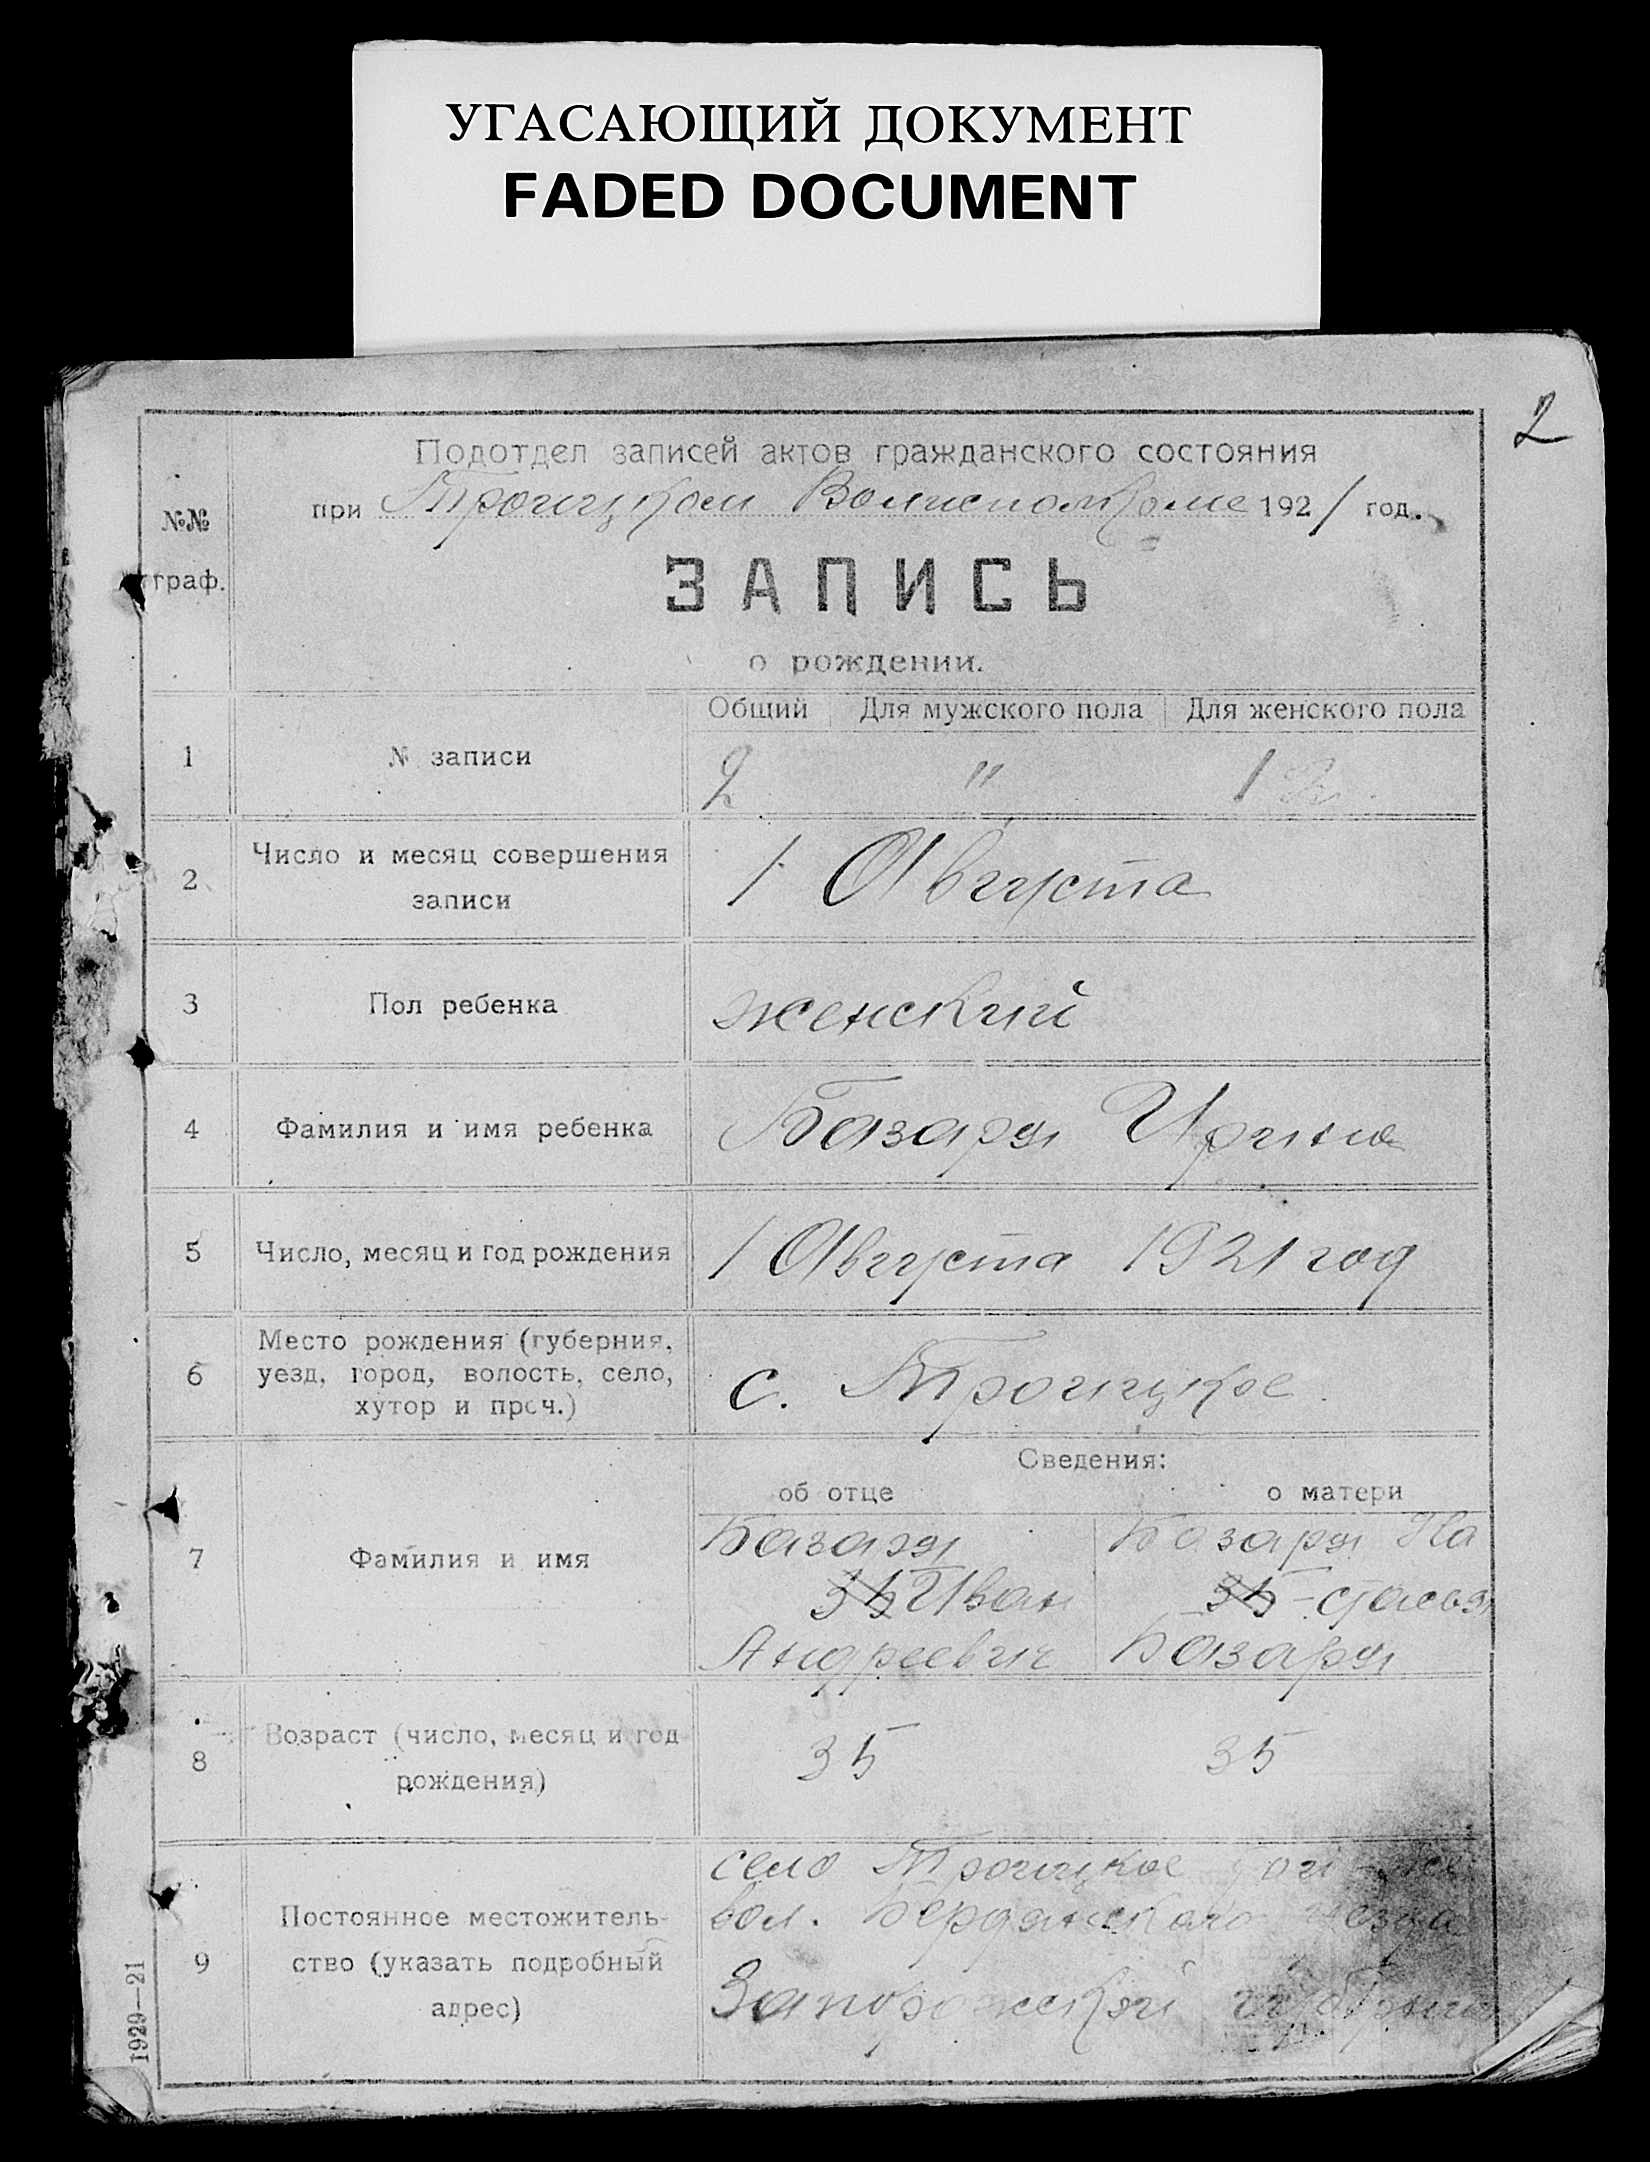 УГАСАЮЩИЙ ДОКУМЕНТ
FADED DOCUMENT
2
Подотдел записей актов гражданского состояния
при Троицком Волисполкоме 1921 год.
№№ граф.
ЗАПИСЬ
о рождении.
Общий Для мужского пола Для женского пола
1 № записи 2 " 1
2 Число и месяц совершения записи 1 Августа
3 Пол ребенка женский
4 Фамилия и имя ребенка Базаря Ирина
5 Число, месяц и год рождения 1 Августа 1921 год
6 Место рождения (губерния,
уезд, город, волость, село,
хутор и проч.) с. Троицкое
Сведения:
об отце о матери
7 Фамилия и имя
Базаря Базаря На
35 Иван 35 -стасья
Андреевич Базаря
8 Возраст (число, месяц и год
рождения) 35 35
село Троицкое
9 Постоянное местожитель-
ство (указать подробный
адрес)
вол. Бердянского уезда
Запорожской губернии
1929—21